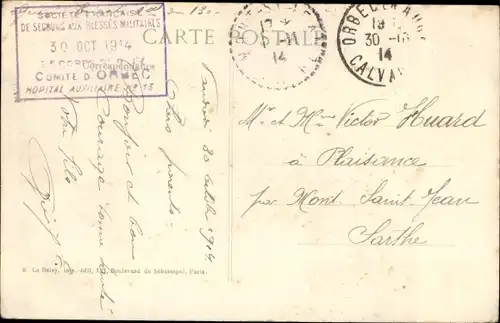 SOCIÉTÉ FRANÇAISE
DE SECOURS AUX BLESSÉS MILITAIRES
30 OCT 1914
COMITÉ D'ORBEC
HOPITAL AUXILIAIRE N° 13
CARTE POSTALE
Correspondance
ORBEC EN AUGE
30 -10
14
CALVADOS
14
Vendredi 30 octobre 1914
Chers parents
Bonjour et bon
Courage bonne santé
Votre fils
Mr et Mme Victor Huard
à Plaisance
par Mont Saint Jean
Sarthe
Le Deley, imp.-édit., Boulevard de Sébastopol, Paris.